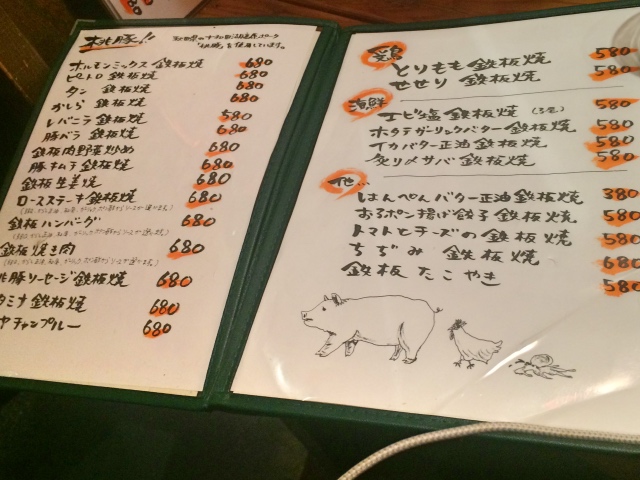 桃豚!!
を使用しています。
ホルモンミックス 鉄板焼 680
ピートロ 鉄板焼 680
タン 鉄板焼 680
かしら 鉄板焼 680
レバニラ 鉄板焼 580
豚バラ 鉄板焼 680
鉄板肉野菜炒め 680
豚キムチ 鉄板焼 680
鉄板生姜焼 680
ロースステーキ鉄板焼 680
鉄板ハンバーグ 680
鉄板焼き肉 680
桃豚ソーセージ鉄板焼 680
タミナ鉄板焼 680
ヤチャンプルー 680
鶏
とりもも鉄板焼 580
せせり 鉄板焼 580
海鮮
エビ塩 鉄板焼 580
ホタテガーリックバター鉄板焼 580
イカバター正油 鉄板焼 580
炙りメサバ 鉄板焼 580
他...
はんぺんバター正油鉄板焼 380
おろポン揚げ餃子 鉄板焼 580
トマトとチーズの鉄板焼 580
ちぢみ 鉄板焼 680
鉄板たこやき 580